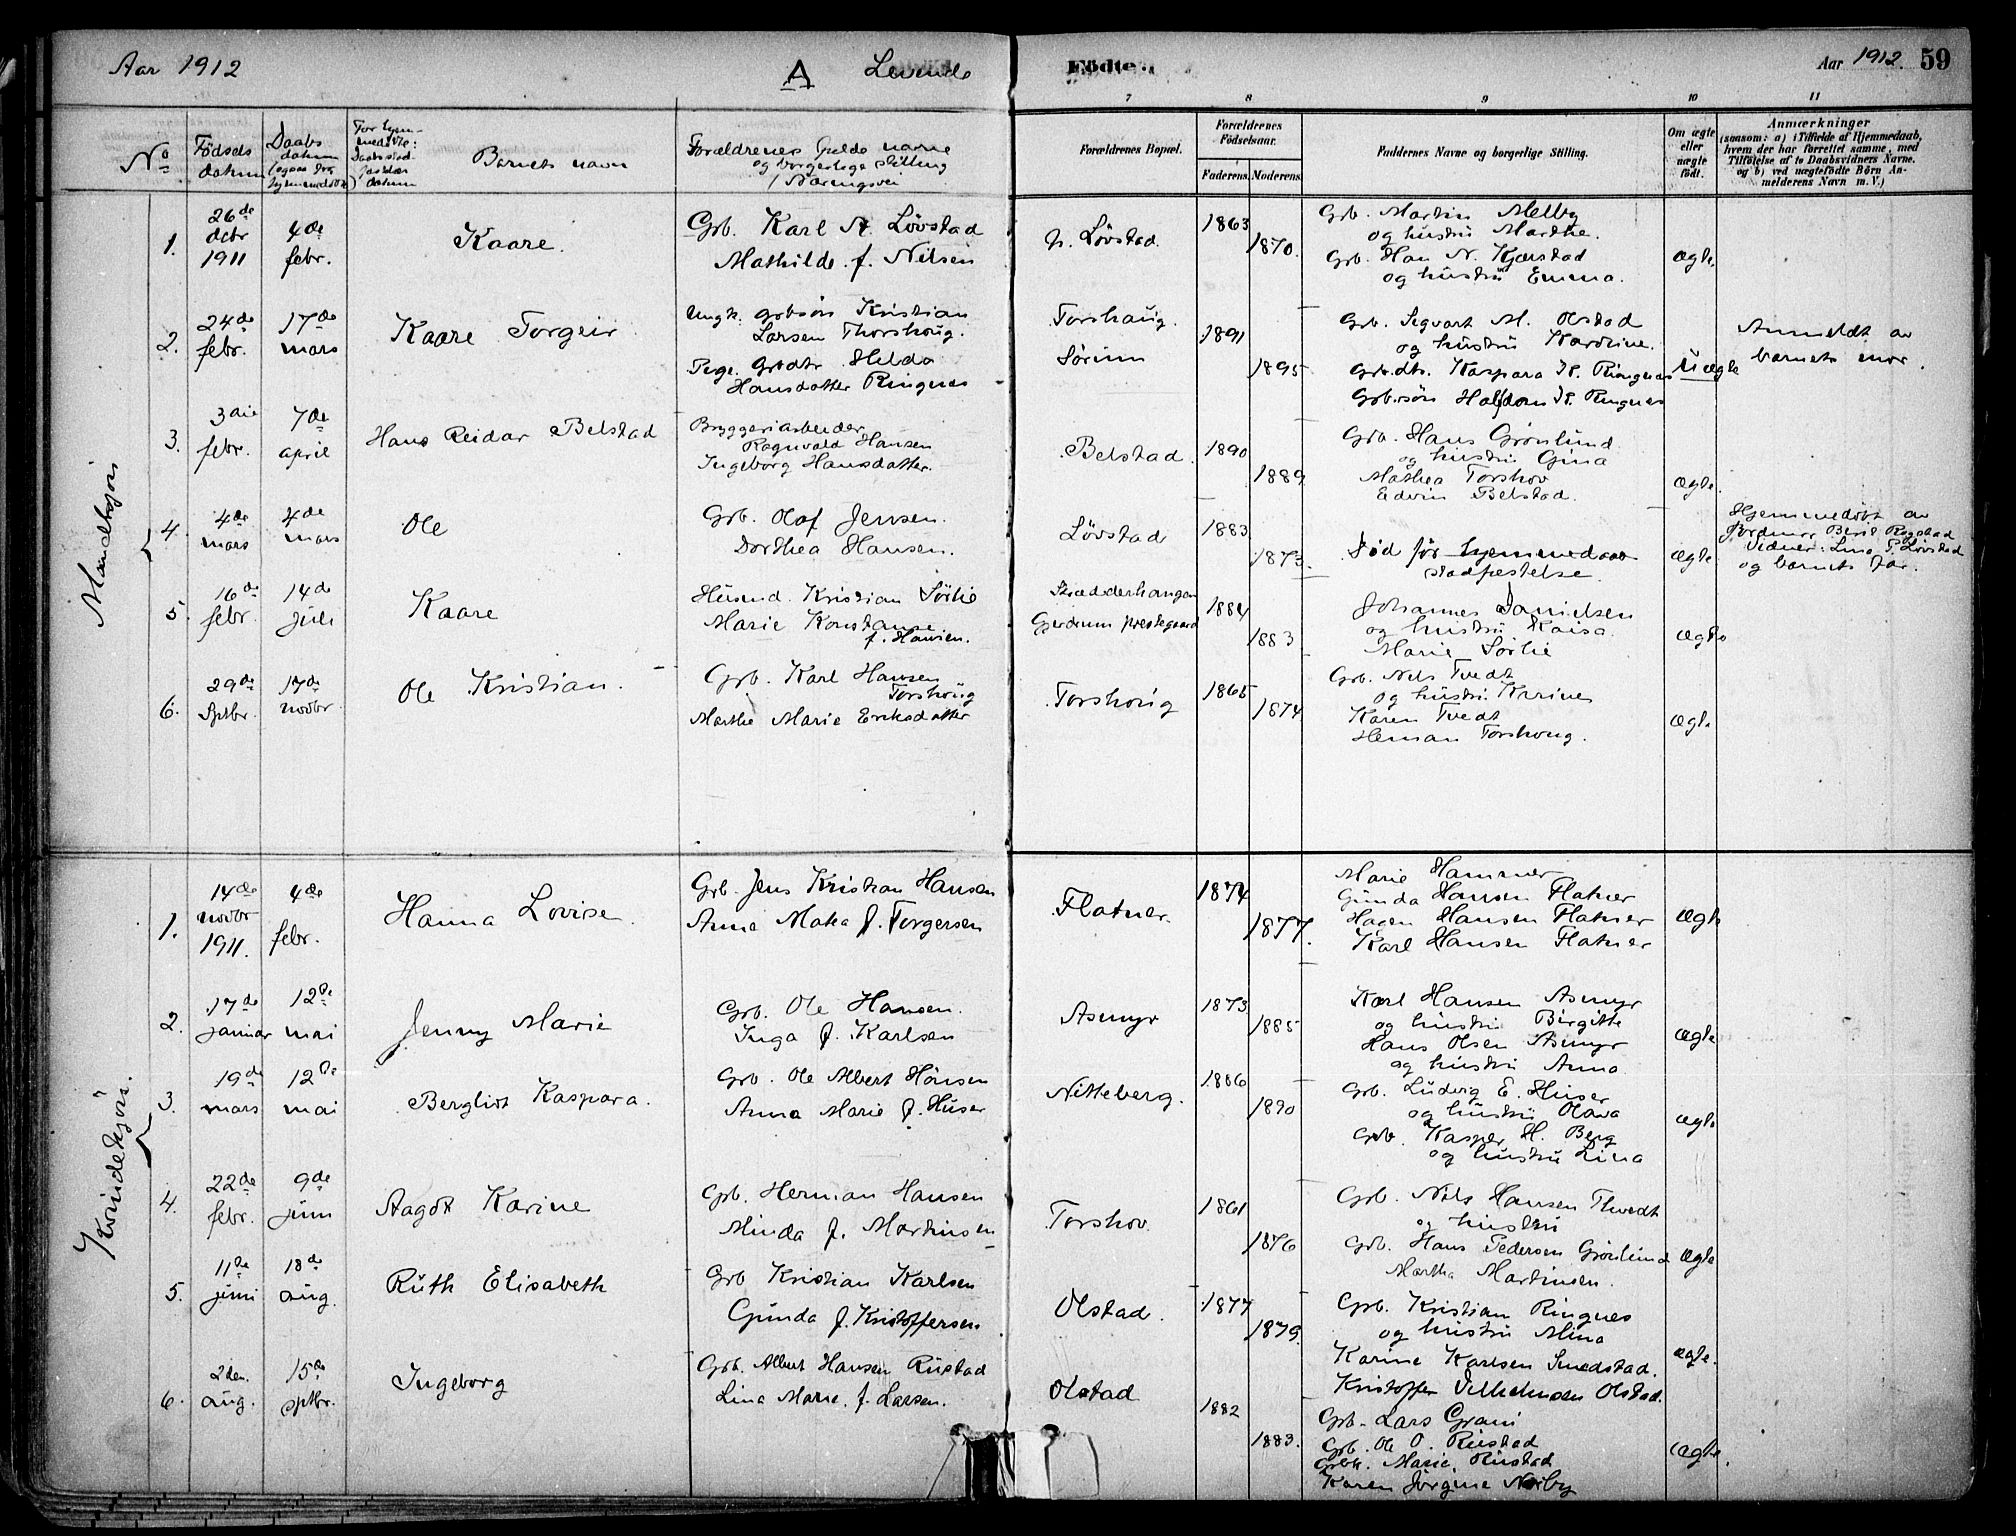 Aar 1912
A
Levende
Fødte.
Aar 1912.
59
7
8
9
10
11
No
Fødsels
datum
Daabs
datum
Barnets navn
Forældrenes fulde navne
og borgerlige stilling
/ Næringsvei
Forældrenes Bopæl.
Forældrenes
Fødselsaar.
Faderens.
Moderens.
Faddernes Navne og borgerlige Stilling.
Om ægte
eller
uægte
født.
Anmærkninger
(saasom: a) i Tilfælde af Hjemmedaab,
hvem der har forrettet samme, med
Tilføielse af to Daabsvidners Navne.
og b) ved uægtefødte Børn An-
melderens Navn m. V.)
Mandkjøn
1.
26de
octbr
1911
4de
febr.
Kaare.
Grb. Karl A. Løvstad
Mathilde f. Nilsen
n. Løvstad.
1863
1870.
Grb. Martin Melby
og hustru Marthe.
Grb. Han N. Kjærstad
og hustru Emma.
ægte.
2.
24de
febr.
17de
mars
Kaare Torgeir
Ungk. grbsøn Kristian
Larsen Thorshoug.
Pige. Grbdtr. Hilda
Hansdatter Ringnes
Torshaug.
Sørum
1891
1895
Grb. Sigvart M. Olstad
og hustru Karoline.
Grb.dtr. Kaspara K. Ringnes
Grb.søn Halfdan K. Ringnes
Uægte
Anmeldt av
barnets mor.
3.
3die
febr.
7de
april
Hans Reidar Belstad
Bryggeriarbeider
Ragnvald Hansen
Ingeborg Hansdatter.
Belstad.
1890
1889
Grb. Hans Grønlund
og hustru Gina
Mathea Torshov
Edvin Belstad.
ægte.
4.
4de
mars
4de
mars
Ole
Grb. Olaf Jensen.
Dorthea Hansen.
Løvstad
1883
1873.
Død før hjemmedaab
stadfæstelse.
ægte
Hjemmedøbt av
Jordmor Berit Rogstad
Vidner: Lina P. Løvstad
og barnets far.
5.
16de
febr.
14de
juli
Kaare
Husmd. Kristian Sørlie
Marie Konstanse
f. Hansen.
Gjerdrum prestegaard
1884
1883
Johannes Danielsen
og hustru Kaisa.
Marie Sørlie
ægte
6.
29de
Sptbr.
17de
novbr.
Ole Kristian.
Grb. Karl Hansen
Torshoug
Marthe Marie Eriksdatter
Torshoug
1865
1874
Grb. Nels Tvedt
og hustru Karine
Karen Tvedt
Herman Torshoug.
ægte
Kvindekjøn.
1.
14de
novbr
1911.
4de
febr.
Hanna Lovise
Grb. Jens Kristian Hansen
Anna Mata f. Torgersen
Flatner.
1874
1877.
Marie Hammer
Gunda Hansen Flatner
Hagen Hansen Flatner
Karl Hansen Flatner
ægte
2.
17de
januar
12te
mai
Jenny Marie
Grb. Ole Hansen.
Inga f. Karlsen
Asmyr
1873
1885
Karl Hansen Asmyr
og hustru Birgitte
Hans Olsen Asmyr
og hustru Anna
ægte
3.
19de
mars
12te
mai
Bergliot Kaspara.
Grb. Ole Albert Hansen
Anna Marie f. Huser
Nitteberg.
1886
1890
Grb. Ludvig E. Huser
og hustru Olava
Grb. Kasper H. Berg
og hustru Lina
ægte
4.
22de
febr.
9de
juni
Aagot Karine
Grb. Herman Hansen
Minda f. Martinsen
Torshov
1861
1876
Grb. Nils Hansen Thvedt
og hustru
Grb. Hans Pedersen Grønlund
Martha Martinsen.
ægte
5.
11te
juni
18de
aug.
Ruth Elisabeth
Grb Kristian Karlsen
Gunda f. Kristoffersen
Olstad.
1877
1879.
Grb. Kristian Ringnes
og hustru Mina
Karine Karlsen Smedstad.
Kristoffer Vilhelmsen Olstad.
ægte.
6.
2den.
aug.
15de
sptbr.
Ingeborg
Grb. Albert Hansen Rustad
Lina Marie f. Larsen.
Olstad
1882
1883.
Grb. Lars Grani
Grb. Ole O. Rustad
Marie Rustad
Karen Jørgine Norby
ægte.